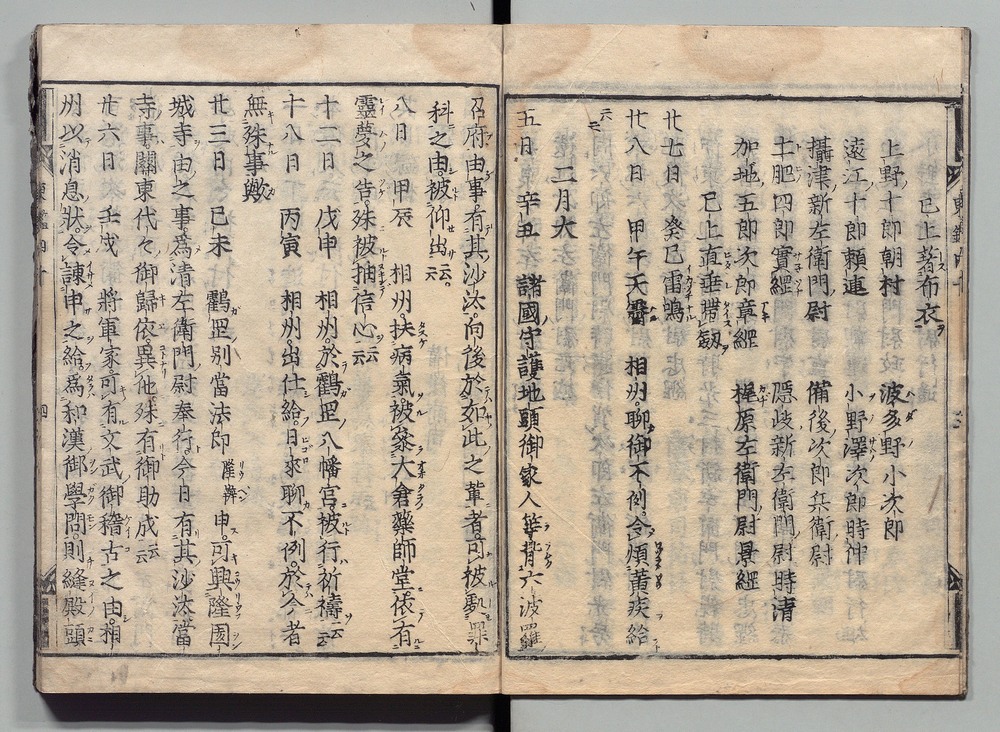 已上著布衣
上野十郎朝村 波多野小次郎
遠江十郎頼連 小野澤次郎時仲
攝津新左衛門尉 備後次郎兵衛尉
土肥四郎實經 隠岐新左衛門尉時清
加地五郎次郎章經 梶原左衛門尉景經
已上直垂帶劔
廿七日 癸巳雷鳴
廿八日 甲午天霽 相州聊御不例令煩黄疾給
二月大
五日 辛丑 諸國守護地頭御家人等背六波羅
召府由事有其沙汰向後於如此之輩者可被罪
科之由被仰出云云
八日 甲辰 相州扶病氣被參大倉藥師堂依有
靈夢之告殊被抽信心云云
十二日 戊申 相州於鶴罡八幡宮被行祈禱云云
十八日 丙寅 相州出仕給日來聊不例於今者
無殊事歟
廿三日 已未 鶴罡別當法印隆辨申可興隆園
城寺由之事為清左衛門尉奉行今日有其沙汰當
寺事關東代々御歸依異他殊有御助成云云
廿六日 壬戌 將軍家可有文武御稽古之由相
州以消息狀令諫申之給為和漢御學問則縫殿頭
東鑑四十
四